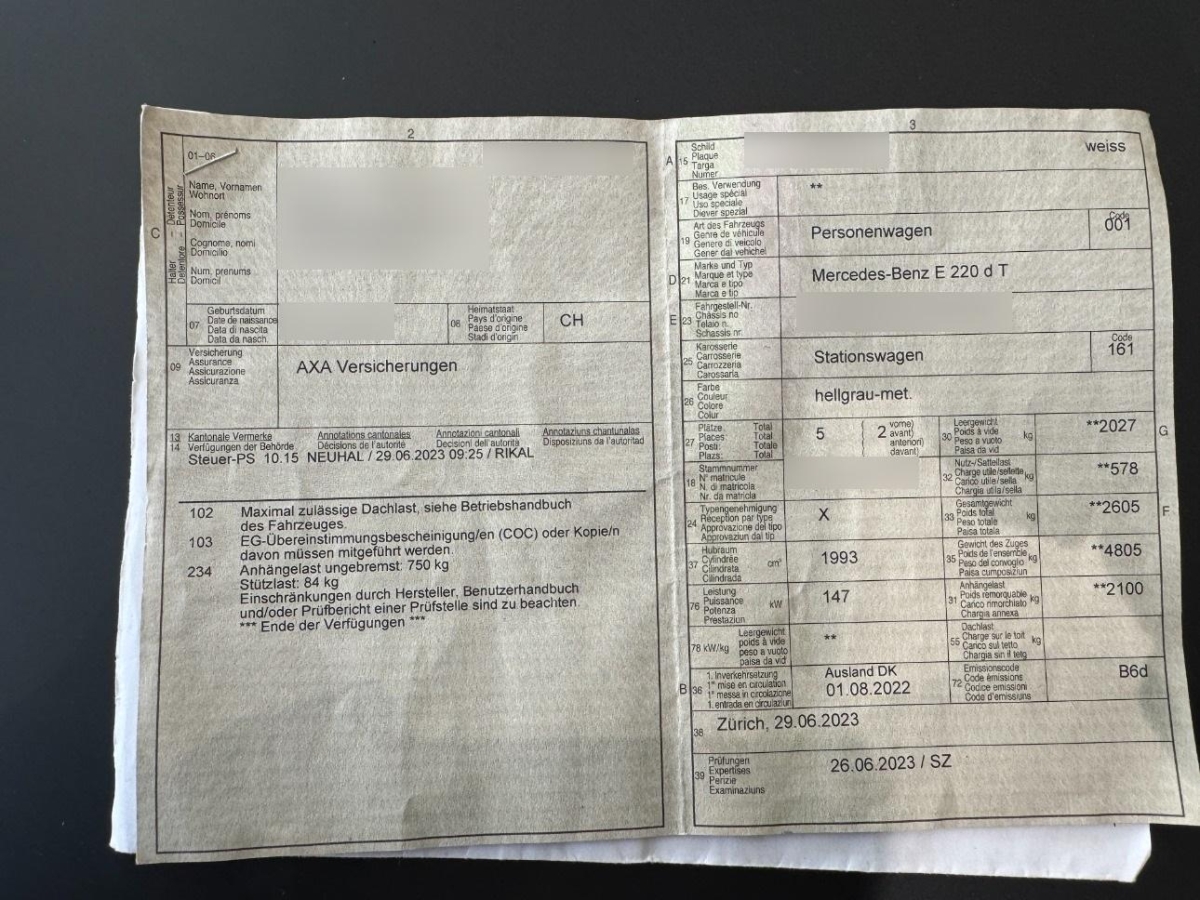 2
01-06
C
Halter Détenteur
Detentore - Possessur
Name, Vornamen
Wohnort
Nom, prénoms
Domicile
Cognome, nomi
Domicilio
Num, prenums
Domicil
07
Geburtsdatum
Date de naissance
Data di nascita
Data da nasch.
08
Heimatstaat
Pays d'origine
Paese d'origine
Stadi d'origin
CH
09
Versicherung
Assurance
Assicurazione
Assicuranza
AXA Versicherungen
13
14
Kantonale Vermerke
Verfügungen der Behörde
Annotations cantonales
Décisions de l'autorité
Annotazioni cantonali
Decisioni dell'autorità
Annotaziuns chantunalas
Disposiziuns da l'autoritad
Steuer-PS 10.15 NEUHAL / 29.06.2023 09:25 / RIKAL
102 Maximal zulässige Dachlast, siehe Betriebshandbuch
des Fahrzeuges.
103 EG-Übereinstimmungsbescheinigung/en (COC) oder Kopie/n
davon müssen mitgeführt werden.
234 Anhängelast ungebremst: 750 kg
Stützlast: 84 kg
Einschränkungen durch Hersteller, Benutzerhandbuch
und/oder Prüfbericht einer Prüfstelle sind zu beachten
*** Ende der Verfügungen ***
3
A
15
Schild
Plaque
Targa
Numer
weiss
17
Bes. Verwendung
Usage spécial
Uso speciale
Diever spezial
**
19
Art des Fahrzeugs
Genre de véhicule
Genere di veicolo
Gener dal vehichel
Personenwagen
Code
001
D
21
Marke und Typ
Marque et type
Marca e tipo
Marca e tip
Mercedes-Benz E 220 d T
E
23
Fahrgestell-Nr.
Châssis no
Telaio n.
Schassis nr.
25
Karosserie
Carrosserie
Carrozzeria
Carossaria
Stationswagen
Code
161
26
Farbe
Couleur
Colore
Colur
hellgrau-met.
27
Plätze: Total
Places: Total
Posti: Totale
Plazs: Total
5
2
vorne)
avant)
anteriori)
davant)
30
Leergewicht
Poids à vide
Peso a vuoto
Paisa da vid
kg
**2027
G
18
Stammnummer
N° matricule
N. di matricola
Nr. da matricla
32
Nutz-/Sattellast
Charge utile/sellette
Carico utile/sella
Chargia utila/sella
kg
**578
24
Typengenehmigung
Réception par type
Approvazione del tipo
Approvaziun dal tip
X
33
Gesamtgewicht
Poids total
Peso totale
Paisa totala
kg
**2605
F
37
Hubraum
Cylindrée
Cilindrata
Cilindrada
cm³
1993
35
Gewicht des Zuges
Poids de l'ensemble
Peso del convoglio
Paisa cumposiziun
kg
**4805
76
Leistung
Puissance
Potenza
Prestaziun
kW
147
31
Anhängelast
Poids remorquable
Carico rimorchiato
Chargia annexa
kg
**2100
78 kW/kg
Leergewicht
poids à vide
peso a vuoto
paisa da vid
**
55
Dachlast
Charge sur le toit
Carico sul tetto
Chargia sin il tetg
kg
B
36
1. Inverkehrsetzung
1re mise en circulation
1a messa in circolazione
1. entrada en circulaziun
Ausland DK
01.08.2022
72
Emissionscode
Code émissions
Codice emissioni
Code d'emissiuns
B6d
38
Zürich, 29.06.2023
39
Prüfungen
Expertises
Perizie
Examinaziuns
26.06.2023 / SZ